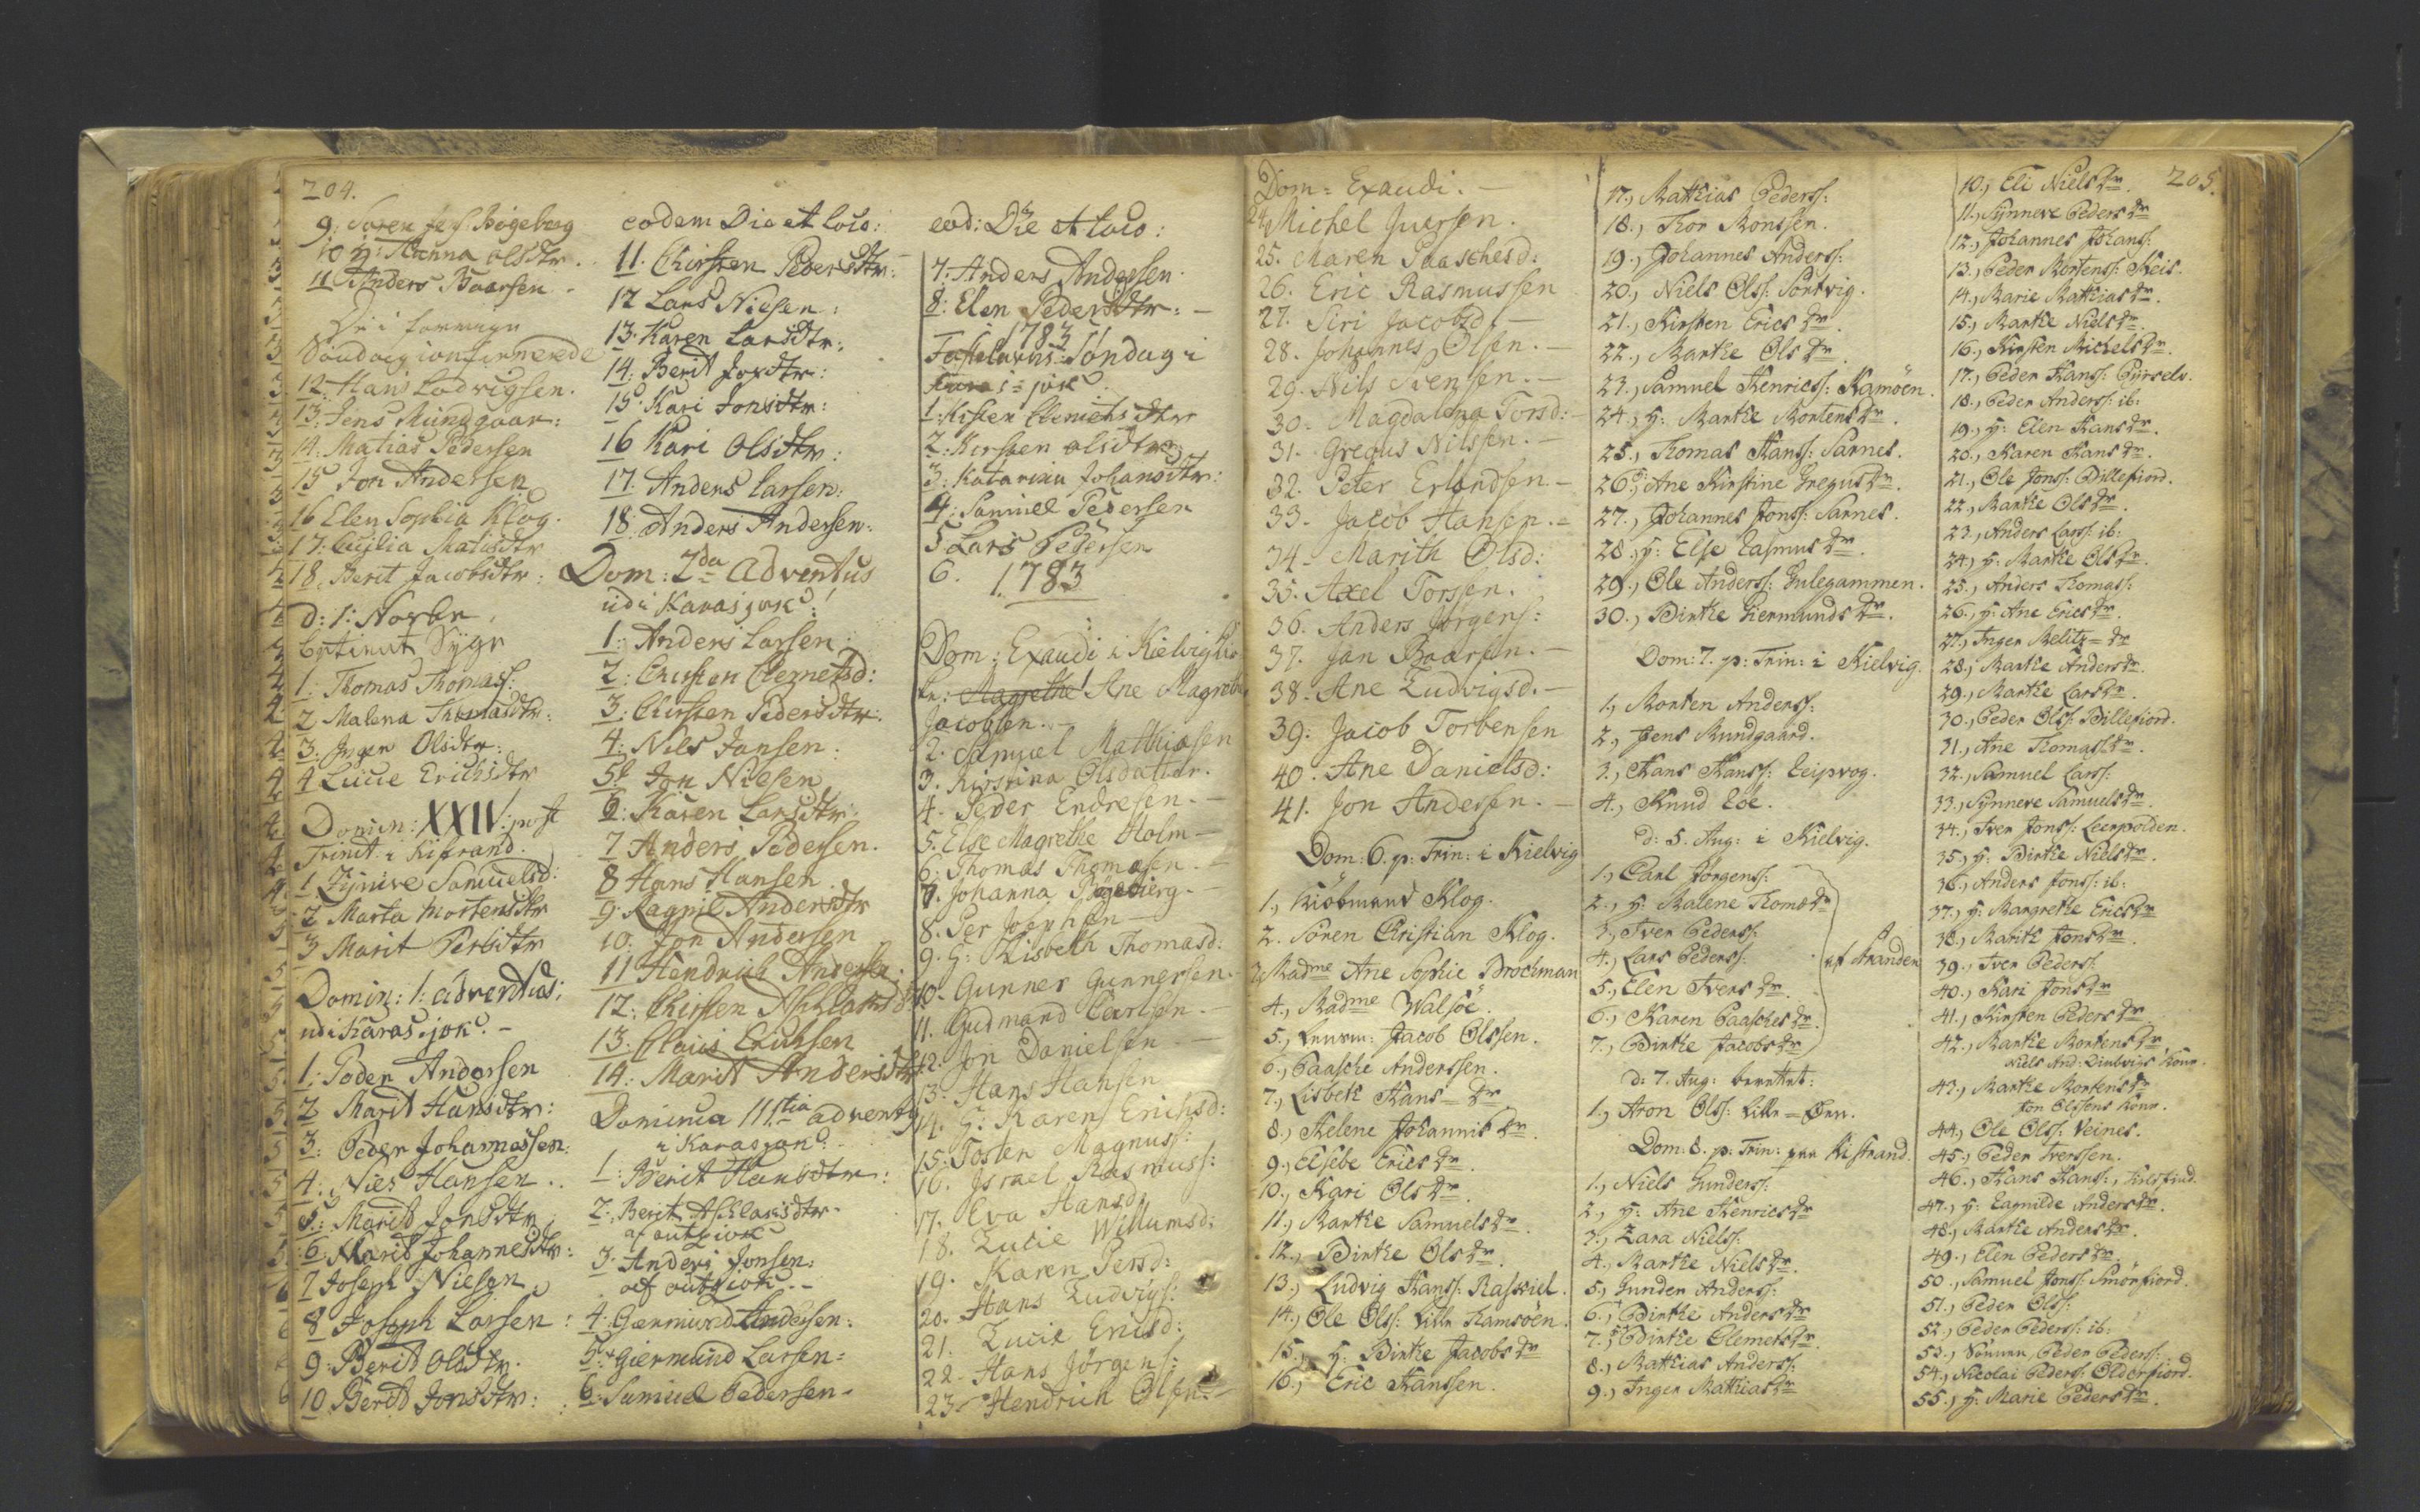 204.
9: Søren Jens: Bogeberg
10 H: Hanna Olsdtr.
11 Anders Baarsen -
De i
Søndag confirmerede
12. Hans Lodvigsen.
13: Jens Mundgaar:
14: Matias Pedersen
15 Jon Andersen
16 Elen Sophia Klog.
17: Matisdtr
18. Berit Jacobsdtr:
d: 1: Novbr.
betient Syge
1: Thomas Thomass:
2 Malena Thomasdtr:
3: Inger Olsdtr:
4 Lucie Erichsdtr
Domin: XXIV: post
Trinit: i Kistrand.
1. Synive Samuelsd:
2 Marta Mortensdtr
3 Marit Persdtr
Domin: 1: adventus:
udi Karasjok. -
1: Peder Andersen
2 Marit Hansdtr:
3: Peder Johannessen:
4: Niels Hansen..
5: Marit Jonsdtr
6 Marit Johannesdtr:
7 Joseph Nielsen
8 Joseph Larsen:
9: Berit Olsdtr.
10 Berit Jonsdtr:
eodem Die et loco:
11. Chirsten Pedersdtr:
12 Lars Nielsen:
13: Karen Larsdtr:
14: Berit Josdtr:
15: Kari Jonsdtr:
16 Kari Olsdtr:
17. Anders Larsen:
18: Anders Andersen:
Dom: 2da Adventus
udi Karasjok:
1: Anders Larsen:
2: Chirsten Clemetsd:
3: Chirsten Pedersdtr:
4: Nils Jansen:
5: Jon Nielsen
6: Karen Larsdtr:
7 Anders Pedersen.
8 Hans Hansen
9: Ragnil Andersdtr
10: Jon Andersen
11 Hendrich Andersen.
12: Chirsten Aschlaksd:
13: Claus Erichsen
14: Marit Andersdtr
Dominica 111tia advent9
i Karasjok.
1: Berit Hansdtr:
2: Berit Aschlaksdtr.
af
3: Anders Jonsen:
af
4: Giermund Andersen.
5: Giermund Larsen:
6: Samuel Pedersen.
eod: Die et loco:
7: Anders Andersen.
8: Elen Pedersdtr: -
1783
Fastelavns: Søndag i
Karas=jok.
1: Kisten Clemets dtr
2: Kirsten Olsdtr
3: Katarina Johansdtr:
4: Samuel Pedersen
5 Lars Pedersen
6.
1783
Dom: Exaudi i Kielvig
Magrethe Ane Magrethe
Jacobsen. -
2. Samuel Mathiasen
3. Kirstina Olsdatter.
4. Peder Endresen. -
5. Else Magrethe Holm -
6: Thomas Thomasen. -
7. Johanna Bogebierg -
8. Per Josephsen -
9. H: Lisbeth Thomasd:
10. Gunner Gunnersen.
11. Gudmand Carlsen. -
12. Jon Danielsen -
13. Hans Hansen
14. H: Karen Erichsd:
15: Tosten Magnuss:
16. Israel Rasmuss:
17. Eva Hansd:
18. Lucie Willumsd:
19. Karen Persd:
20. Hans Ludvigs:
21. Lucie Ericsd:
22. Hans Jörgens:
23. Hendrich Olsen. -
Dom: Exaudi. -
24 Michel Juersen.
25. Maren Paaschesd:
26. Eric Rasmussen
27. Siri Jacobsd -
28. Johannes Olsen. -
29. Nils Svensen. -
30. Magdalena Torsd: -
31. Gregus Nilssen. -
32. Peter Erlandsen. -
33. Jacob Hansen. -
34. Marith Olsd:
35. Axel Torssen.
36. Anders Jörgens:
37. Jan Baarsen. -
38. Ane Ludvigsd. -
39. Jacob Torbensen
40. Ane Danielsd:
41. Jon Andersen. -
Dom: 6. p: Trin: i Kielvig
1., Kiöbmand Klog.
2. Sören Christian Klog.
3 Madme Ane Sophie Brochman
4., Madme Walsöe.
5., Jacob Olssen.
6., Paasche Anderssen.
7., Lisbeth Hans=Dr
8., Helene Johannis Dr.
9., Elsebe Erics Dr.
10., Kari Ols Dr.
11., Marthe Samuels Dr.
12., Birthe Ols Dr.
13., Ludvig Hanss:
14., Ole Olss: Lille Kamöen.
15., H: Birthe Jacobs Dr
16., Eric Hanssen.
17., Mathias Pederss:
18., Thor Monssen.
19., Johannes Anderss:
20., Niels Olss: Sortvig.
21., Kirsten Erics Dr.
22., Marthe Ols Dr.
23., Samuel Henricss: Kamöen.
24., H: Marthe Mortens Dr.
25., Thomas Hanss: Sarnes.
26., Ane Kirstine Gregus Dr.
27., Johannes Jonss: Sarnes.
28., H: Else Rasmus Dr.
29., Ole Anderss: Gulegammen.
30., Birthe Giermunds Dr.
Dom: 7. p: Trin: i Kielvig.
1., Morten Anderss:
2., Jens Mundgaard.
3., Hans Hanss: Leipvog.
4., Knud Loe.
d: 5. Aug: i Kielvig.
1., Carl Jörgenss:
2., H: Malene Thoms Dr
3., Iver Pederss:
4., Lars Pederss:
5., Elen Ivers Dr.
6., Karen Paasches Dr.
7., Birthe Jacobs Dr
af Stranden
d: 7. Aug: berettet:
1., Aron Olss: Lille=
Dom: 8. p: Trin: paa Kistrand.
1., Niels Gunderss:
2., H: Ane Henrics Dr
3., Zara Nielss:
4., Marthe Niels Dr.
5., Gunder Anderss:
6., Birthe Anders Dr
7., Birthe Clemets Dr.
8., Mathias Anderss:
9., Inger Mathias Dr
205.
10., Eli Niels Dr.
11., Synneve Peders Dr
12., Johannes Johanss:
13., Peder Mortenss: Keis.
14., Marie Mathias Dr.
15., Marthe Niels Dr.
16., Kirsten Michels Dr.
17., Peder Hanss:
18., Peder Anderss: ib:
19., H: Elen Hans Dr.
20., Karen Hans Dr.
21., Ole Jonss: Billefiord.
22., Marthe Ols Dr.
23., Anders Larss: ib:
24., H: Marthe Ols Dr.
25., Anders Thomass:
26., H: Ane Erics Dr.
27., Inger Dr
28., Marthe Anders Dr.
29., Marthe Lars Dr.
30., Peder Olss: Billefiord.
31., Ane Thomass: Dr.
32., Samuel Larss:
33., Synneve Samuels Dr.
34., Iver Jonss: Leerpolden.
35., H: Birthe Niels Dr.
36., Anders Jonss: ib:
37., H: Margrethe Erics Dr
38., Marith Jons Dr.
39., Iver Pederss:
40., Kari Jons Dr
41., Kirsten Peders Dr.
42., Marthe Mortens Dr.
Niels And: Kone.
43., Marthe Mortens Dr
Jon Olssens Kone.
44., Ole Olss: Veines.
45., Peder Iverssen.
46., Hans Hanss:,
47., H: Ragnilde Anders Dr.
48., Marthe Anders Dr.
49., Elen Peders Dr.
50., Samuel Jonss: Smörfiord.
51., Peder Olss:
52., Peder Pederss: ib:
53., Peder Pederss:
54., Nicolai Pederss: Olderfiord.
55., H: Marie Peders Dr.